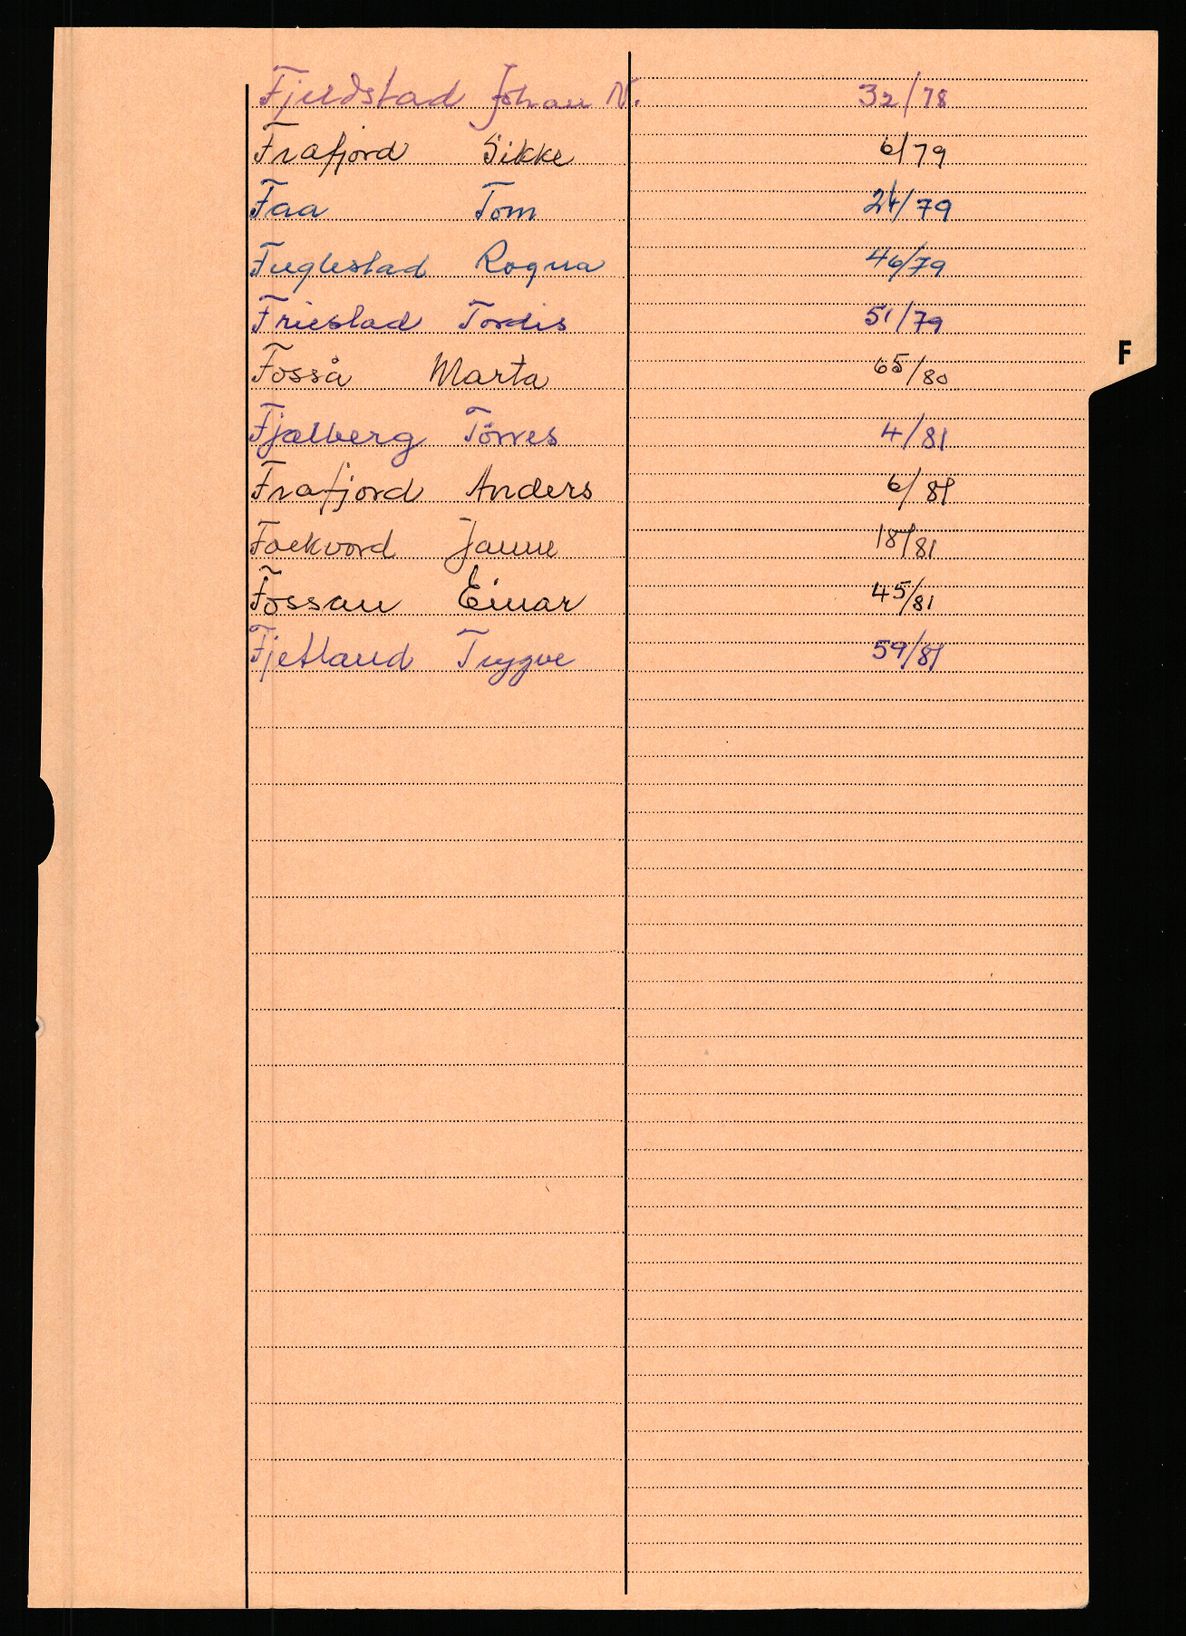 Fjeldstad Johan N. 32/78
Frafjord Sikke 6/79
Faa Tom 24/79
Fuglestad Rogna 46/79
Friestad Tordis 51/79
Fosså Marta 65/80
F
Fjælberg Törres 4/81
Frafjord Anders 6/81
Janne 18/81
Fossan Einar 45/81
Fjetland Trygve 59/81